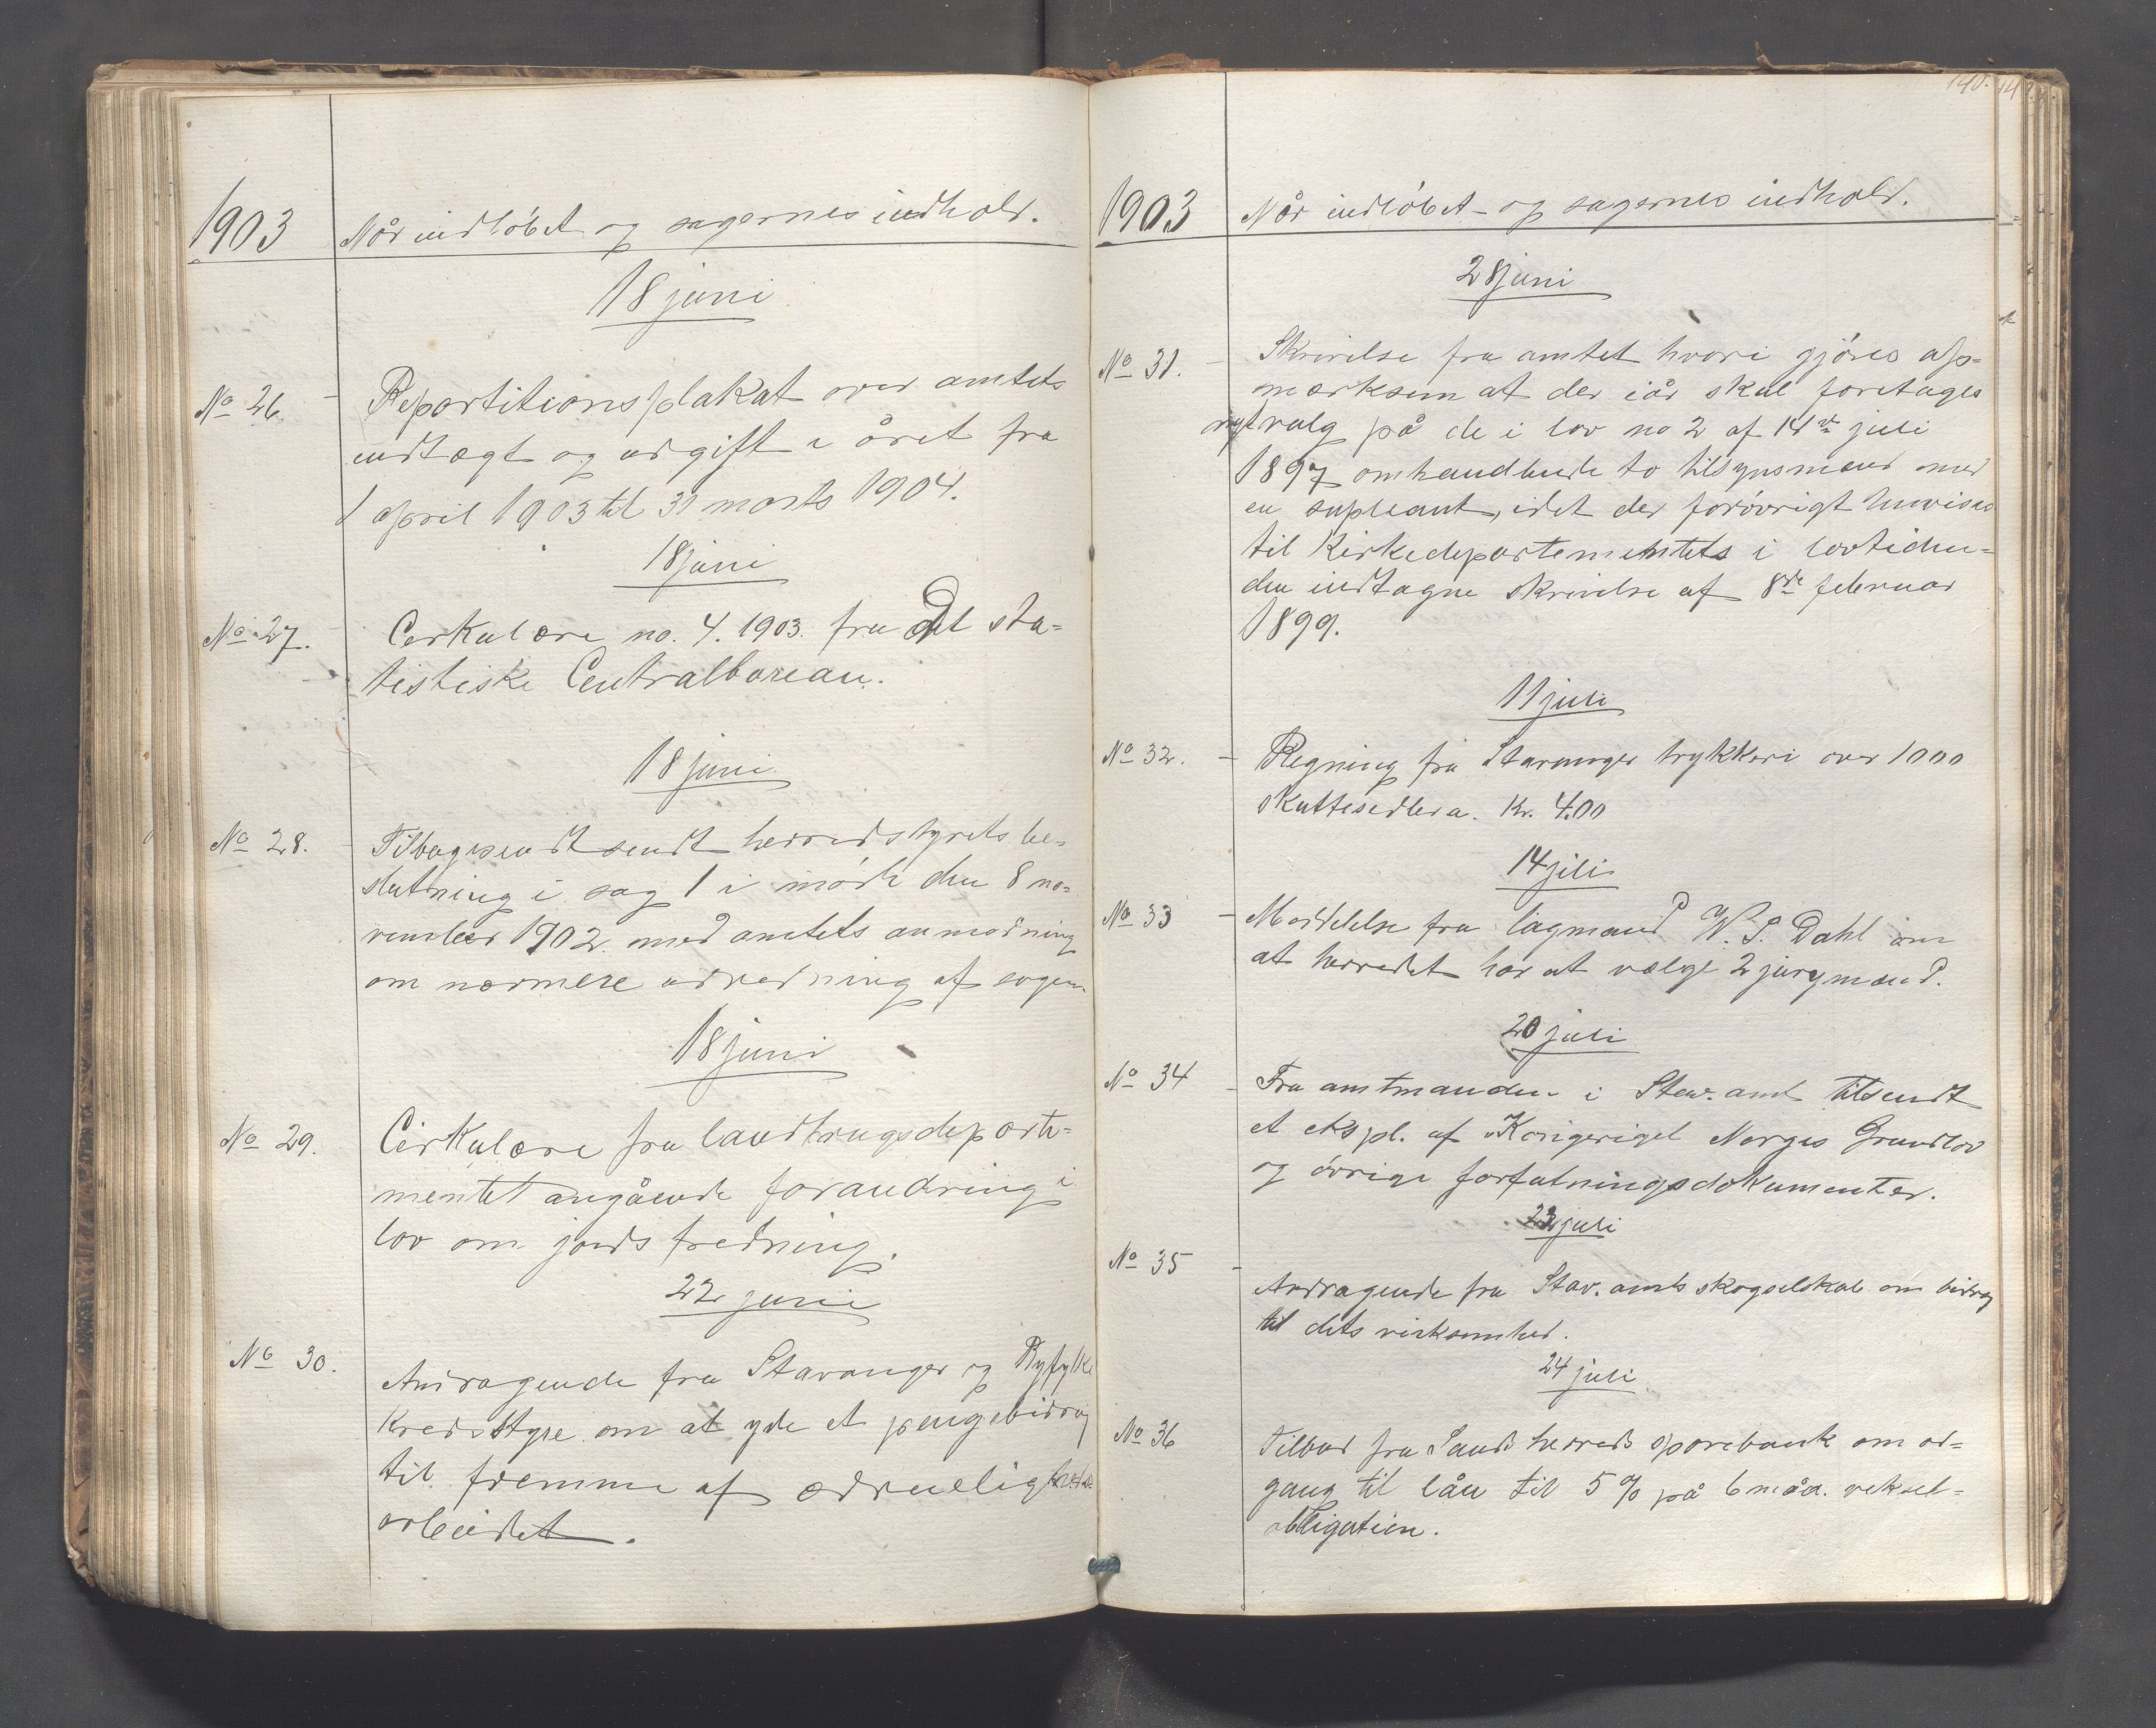 1903 Når indløbet og sagernes indhold.
18 juni
No 26. Repartitionsplakat over amtets
indtægt og udgift i året fra
1 april 1903 til 31 marts 1904.
18 juni
No 27. Cerkulære no. 4. 1903. fra Det sta=
tistiske Centralbureau.
18 juni
No 28. Tilbagesendt sendt herredstyrets be=
slutning i sag 1 i møde den 8 no=
vember 1902. med amtets anmodning
om nærmere udredning af sagen.
18 juni
No 29. Cirkulære fra landbrugsdeparte=
mentet angående forandring i
lov om jords fredning.
22 juni
No 30. Andragende fra Stavanger og Ryfylke
Kredsstyre om at yde et pengebidrag
til fremme af ædrueligheds
arbeidet.
140.
1903 Når indløbet og sagernes indhold.
28 juni
No 31. Skrivelse fra amtet hvori gjøres op=
mærksom at der iår skal foretages
nyt valg på de i lov no 2 af 14de juli
1897 omhandlende to tilsynsmænd med
en supleant, idet der forøvrigt henvises
til Kirkedepartementets i lovtiden=
den indtagne skrivelse af 8de februar
1899.
11 juli
No 32. Regning fra Stavanger trykkeri over 1000
skattesedler a. Kr. 4.00
14 juli
No 33 Meddelelse fra lagmand W. S. Dahl om
at herredet har at vælge 2 jurymænd.
20 juli
No 34 Fra amtmanden i Stav. amt tilsendt
et ekspl. af Kongeriget Norges Grundlov
og øvrige forfatningsdokumenter.
23 juli
No 35
Andragende fra Stav. amts skogselskab om bidrag
til dets virksomhed.
24 juli
No 36 Tilbud fra Sands herreds sparebank om ad=
gang til lån til 5 % på 6 måd. veksel=
obligation.